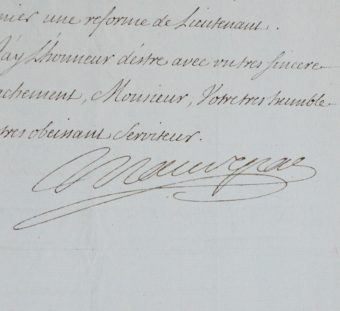 nier une reforme de Lieutenant.
J'ay L'honneur d'éstre avec un tres sincere
achement, Monsieur, Votre tres humble
tres obeissant Serviteur.
Maurepas